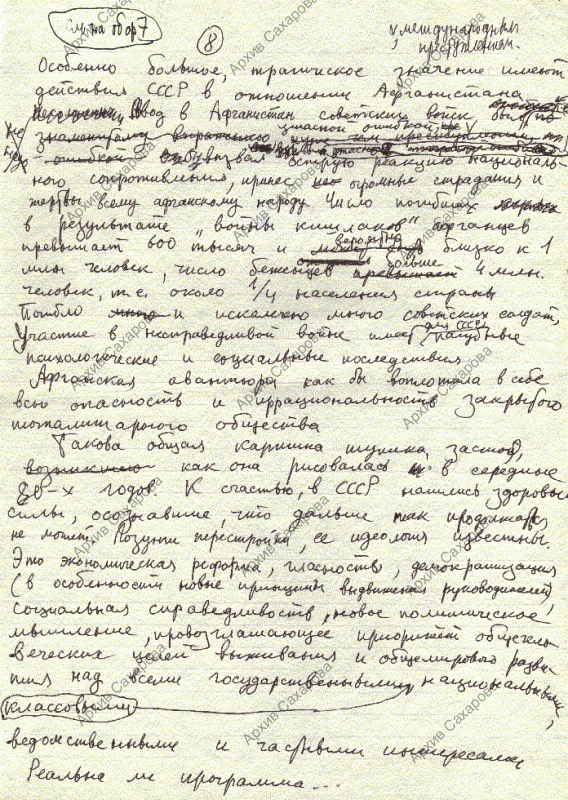 см. на обор 7
8
международным
преступлением.
Особенно большое, трагическое значение имеют
действия СССР в отношении Афганистана
Ввод в Афганистан советских войск был
ужасной ошибкой
ошибкой вызвал острую реакцию националь-
ного сопротивления, принес огромные страдания и
жертвы всему афганскому народу. Число погибших
в результате "войны кишлаков" афганцев
превышает 600 тысяч и вероятно близко к 1
млн человек, число беженцев превышает больше 4 млн.
человек, т.е. около 1/4 населения страны
Погибло много и искалечено много советских солдат,
Участие в несправедливой войне имеет для СССР пагубные
психологические и социальные последствия
Афганская авантюра как бы воплотила в себе
всю опасность и иррациональность закрытого
тоталитарного общества
Такова общая картина тупика, застоя,
как она рисовалась в середине
80-х годов. К счастью, в СССР нашлись здоровые
силы, осознавшие, что дальше так продолжаться
не может. Лозунги перестройки, ее идеология известны.
Это экономическая реформа, гласность, демократизация
(в особенности новые принципы выдвижения руководителей)
социальная справедливость, новое политическое
мышление, провозглашающее приоритет общечело-
веческих целей выживания и общемирового разви
тия над всеми государственными, национальными,
классовыми
ведомственными и частными интересами
Реальна ли программа...
Архив Сахарова